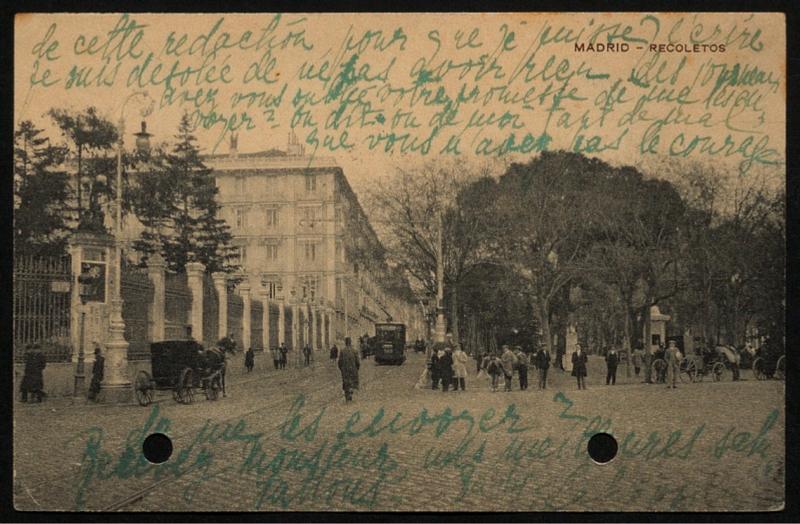 MADRID - RECOLETOS
de cette redaction pour que je puisse l'écrire
je suis desolée de ne pas avoir reçu des
avez vous oublié votre promesse de me les
voyer? ou dit-on de moi tant de mal
que vous n'avez pas le courage
de me les envoyer?
Monsieur, mes meilleures